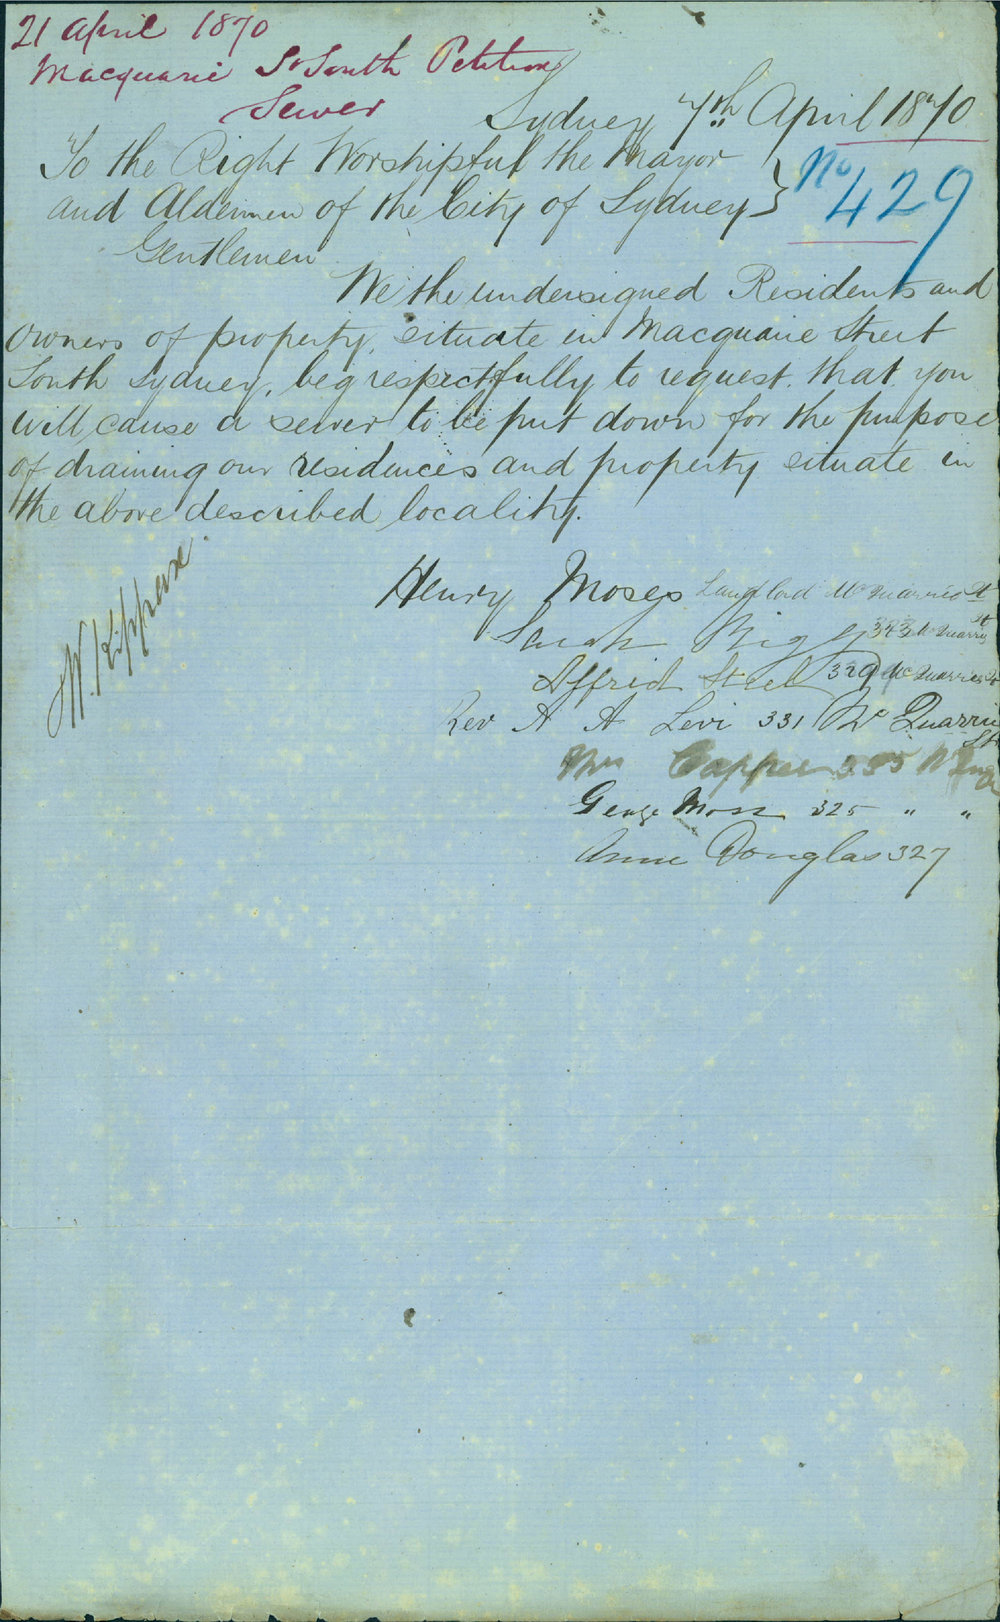 21 April 1870
Macquarie St South Petition
Sewer
Sydney 7th April 1870
No 429
To the Right Worshipful the Mayor
and Aldermen of the City of Sydney }
Gentlemen
We the undersigned Residents and
owners of property, situate in Macquarie Street
South Sydney, beg respectfully to request that you
will cause a sewer to be put down for the purpose
of draining our residences and property situate in
the above described locality.
W. Kippax
Henry Moses Landlord McQuarrie St
Sarah 343 McQuarrie St
Alfrid Steel 329 McQuarrie St
Rev A A Levi 331 McQuarrie St
Mrs
George Moss 325 " "
Anne Douglas 327